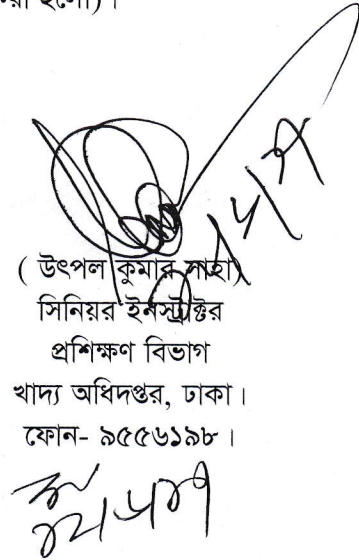 হলো)।
( উৎপল কুমার সাহা)
সিনিয়র ইনস্ট্রাক্টর
প্রশিক্ষণ বিভাগ
খাদ্য অধিদপ্তর, ঢাকা।
ফোন- ৯৫৫৬১৯৮।